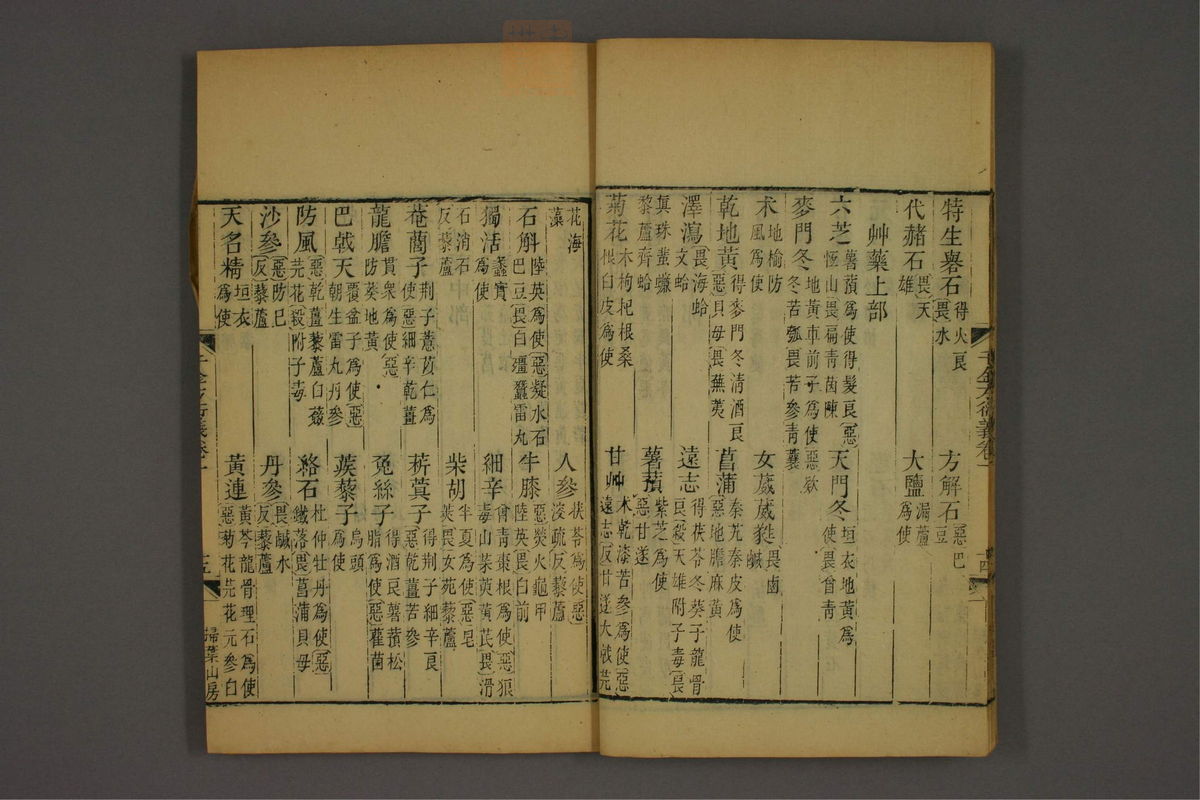 特生礜石得火良畏水 方解石惡巴豆
代赭石畏天雄 大鹽漏蘆為使
艸藥上部
六芝薯蕷為使得髮良惡恆山畏扁靑茵蔯 天門冬垣衣地黃為使畏曾靑
麥門冬地黃車前子為使惡欵冬苦瓠畏苦參靑蘘
术地榆防風為使 女葳葳蕤畏鹵鹹
乾地黃得麥門冬清酒良惡貝母畏蕪荑 菖蒲秦艽秦皮為使惡地膽麻黃
澤瀉畏海蛤文蛤 遠志得茯苓冬葵子龍骨良殺天雄附子毒畏
真珠蜚蠊藜蘆齊蛤 薯蕷紫芝為使惡甘遂
菊花术枸杞根桑根白皮為使 甘艸术乾漆苦參為使惡遠志反甘遂大戟芫
千金方衍義卷一 十四
花海藻 人參茯苓為使惡溲疏反藜蘆
石斛陸英為使惡凝水石巴豆畏白殭蠶雷丸 牛膝惡熒火龜甲陸英畏白前
獨活蠡實為使 細辛曾靑棗根為使惡狼毒山茱萸黃芪畏滑
石消石反藜蘆 柴胡半夏為使惡皂莢畏女菀藜蘆
菴䕡子荊子薏苡仁為使惡細辛乾薑 菥蓂子得荊子細辛良惡乾薑苦參
龍膽貫衆為使惡防葵地黃 兔絲子得酒良薯蕷松脂為使惡雚菌
巴戟天覆盆子為使惡朝生雷丸丹參 蒺藜子烏頭為使
防風惡乾薑藜蘆白蘞芫花殺附子毒 絡石杜仲牡丹為使惡鐵落畏菖蒲貝母
沙參惡防巳反藜蘆 丹參畏鹹水反藜蘆
天名精垣衣為使 黃連黃芩龍骨理石為使惡菊花芫花元參白
千金方衍義卷一 十五 掃葉山房